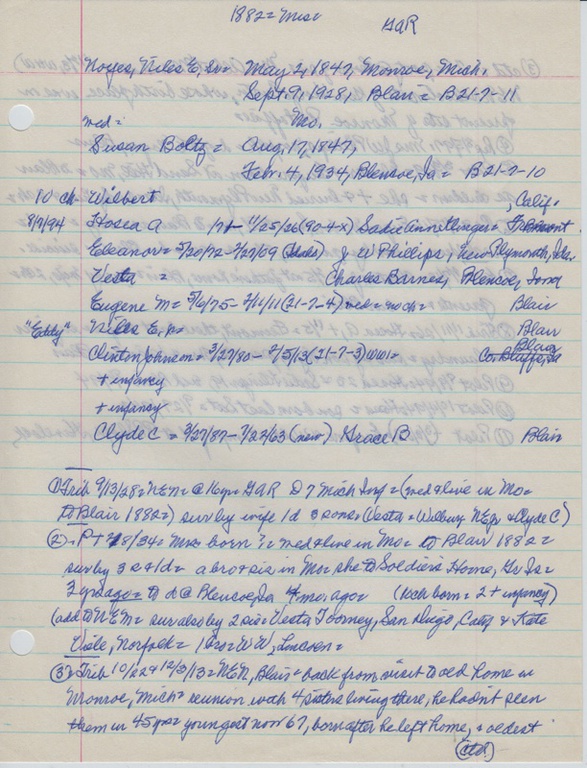 1882 = Misc
GAR
Noyes, Niles E, Sr = May 2, 1847, Monroe, Mich.
Sept. 9, 1928, Blair = B21-7-11
med = Mo.
Susan Boltz = Aug, 17, 1847,
Feb. 4, 1934, Blencoe, Ia = B21-7-10
10 ch Wilbert , Calif.
8/9/94 Hosea A 1/25/26 (90-4-x) Sadie Fremont
Eleanor = 5/20/72 - 2/27/69 J W Phillips, New Plymouth, Ida.
Vesta = Charles Barnes, Blencoe, Iowa
Eugene M = 5/6/75 - 2/11/11 (21-7-4) med = no ch = Blair
"Eddy" Niles E, Jr = Blair
Blair
Clinton Johnson = 3/27/80 - 2/5/13 (21-7-3) WWI = Co. Bluffs, Ia
+ infancy
+ infancy
Clyde C = 3/27/87 - 7/22/63 (new) Grace B Blair
① Trib 9/13/28 = NEN = @ 16 yr = GAR D 7 Mich Inf = (med & live in Mo =
to Blair 1882 =) sur by wife 1 d 3 sons = Vesta = Wilbur, NEJr & Clyde C)
② = P + 2/8/34 = Mrs = born ? = med & live in Mo = to Blair 1882 =
sur by 3 s & 1 d = a bro & sis in Mo = she to Soldiers Home, Gr Is =
2 yrs ago = to d @ Blencoe, Ia 4 mo, ago = (10 ch born = 2 + infancy)
(add to NEN = sur also by 2 sis = Vesta Toorney, San Diego, Calif & Kate
Viele, Norfolk = 1 bro = W W, Lincoln =
③ = Trib 10/22 & 12/3/13 = NEN, Blair = back from visit to old home in
Monroe, Mich = reunion with 4 sisters living there, he hadn't seen
them in 45 yrs = youngest now 67, born after he left home, & oldest
(ctd)